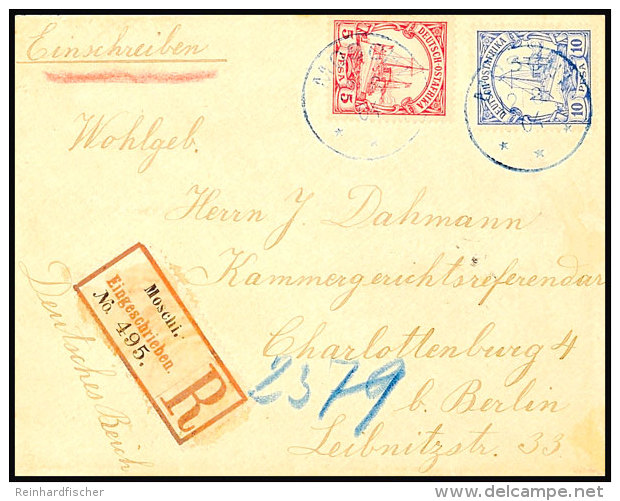 Einschreiben
5 PESA 5
DEUTSCH-OSTAFRIKA
10 PESA 10
DEUTSCH-OSTAFRIKA
Wohlgeb.
Herrn J. Dahmann
Kammergerichtsreferendar
Charlottenburg 4
b. Berlin
Leibnitzstr. 33
Deutsches Reich
Moschi.
Eingeschrieben.
No. 495.
R
2379
Reinhardfischer
delcampe.net